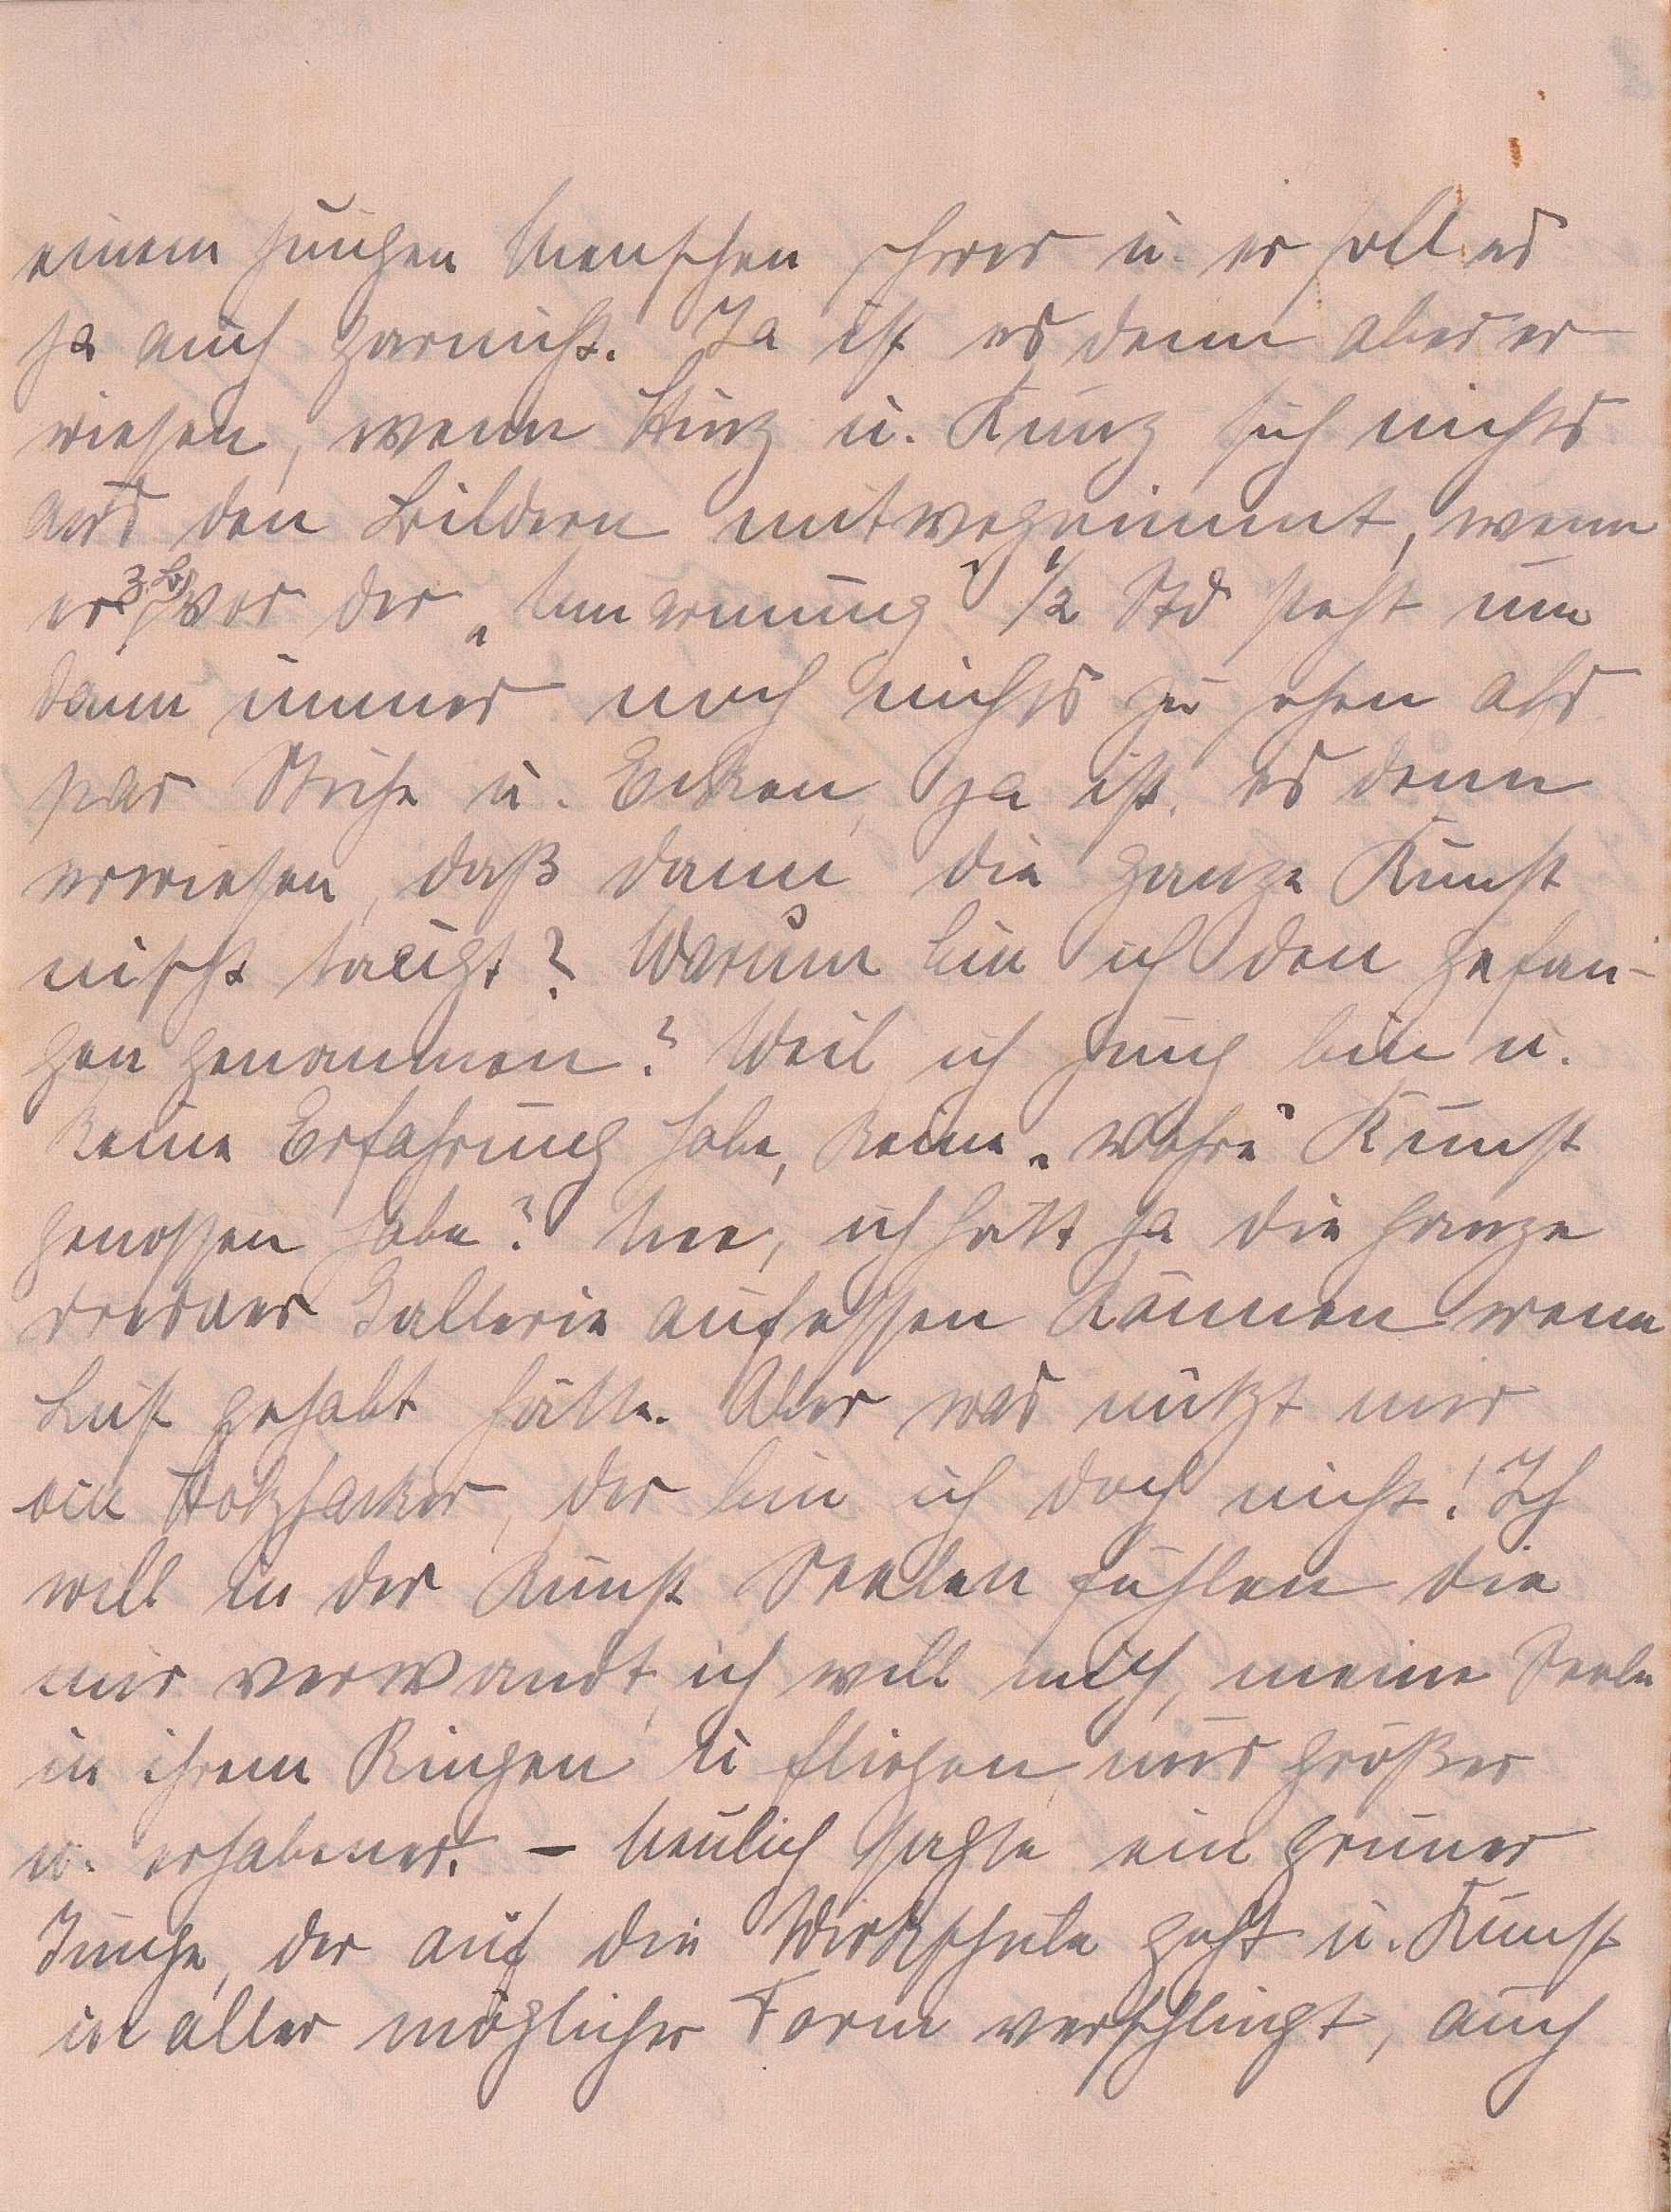 einem jungen Menschen schwer u. er soll es
ja auch garnicht. Ja ist es denn aber er
wiesen, wenn Hinz u. Kunz sich nichts
aus den Bildern mitwegnimmt, wenn
er vor der „Umarmung" 1/2 Std steht um
dann immer noch nichts zu sehen als
par Striche u. Ecken, ja ist es denn
erwiesen, daß dann die ganze Kunst
nischt taugt? Warum bin ich den gefan-
gen genommen? Weil ich jung bin u.
keine Erfahrung habe, keine „wahre" Kunst
genossen habe? Nee, ich hätt ja die ganze
Dresdner Gallerie aufessen können wenn
Lust gehabt hätte. Aber was nützt mir
ein Holzhacker, der bin ich doch nicht! Ich
will in der Kunst Seelen fühlen die
mir verwandt, ich will mich, meine Seele
in ihrem Ringen u fliegen nur größer
u. erhabener. – Neulich sagte ein grüner
Junge, der auf die Wirkschule geht u. Kunst
in aller möglicher Form verschlingt, auch